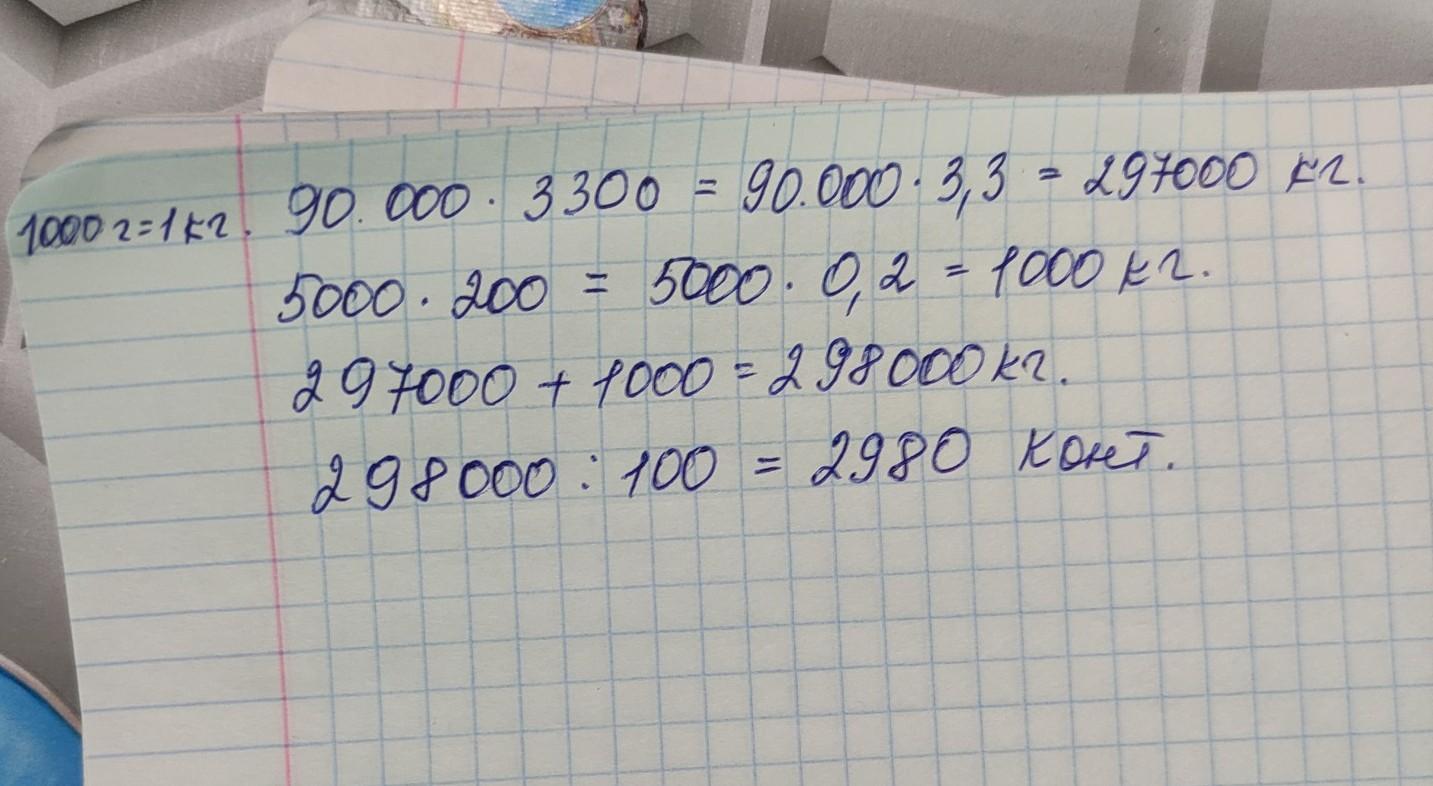 1000 г=1 кг.
90.000 · 3300 = 90.000 · 3,3 = 297000 кг.
5000 · 200 = 5000 · 0,2 = 1000 кг.
297000 + 1000 = 298000 кг.
298000 : 100 = 2980 конт.